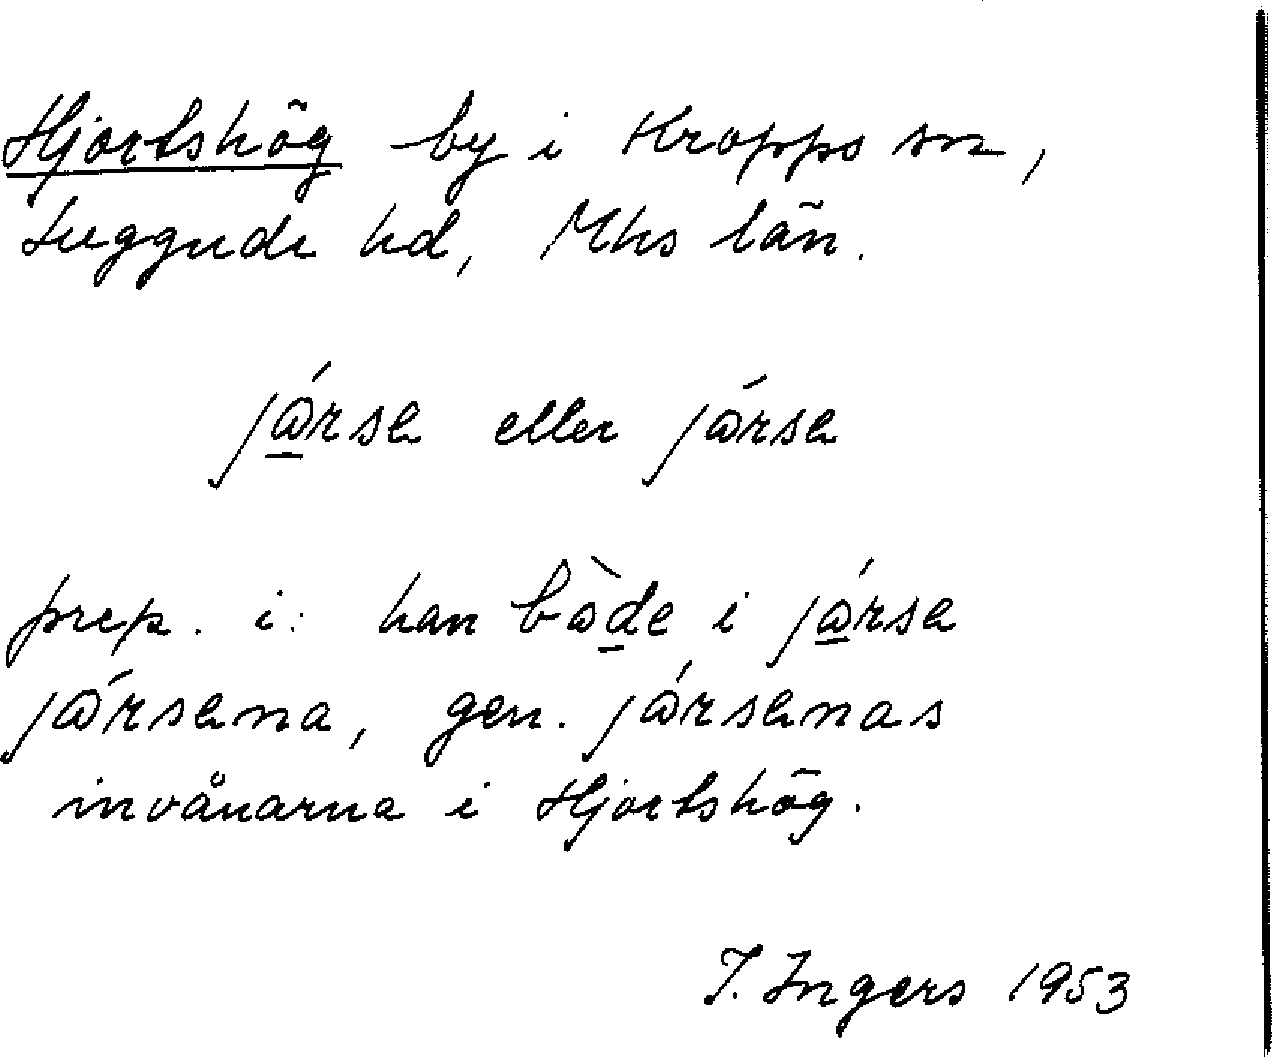 Hjortshög by i Kropps sn,
Luggude hd, Mhs län.
jɷ́rsa eller jɷ́rsa
prep. i: han bɷ̀de i jɷ́rsa
jɷ́rsana, gen. jɷ́rsanas
invånarna i Hjortshög.
I. Ingers 1953